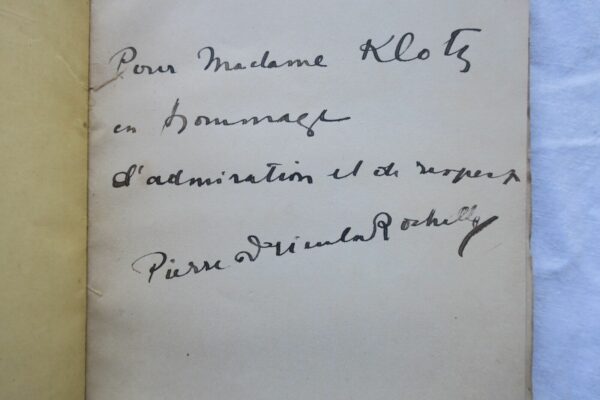 Pour Madame Klotz
en hommage
d'admiration et de respect
Pierre Drieu la Rochelle